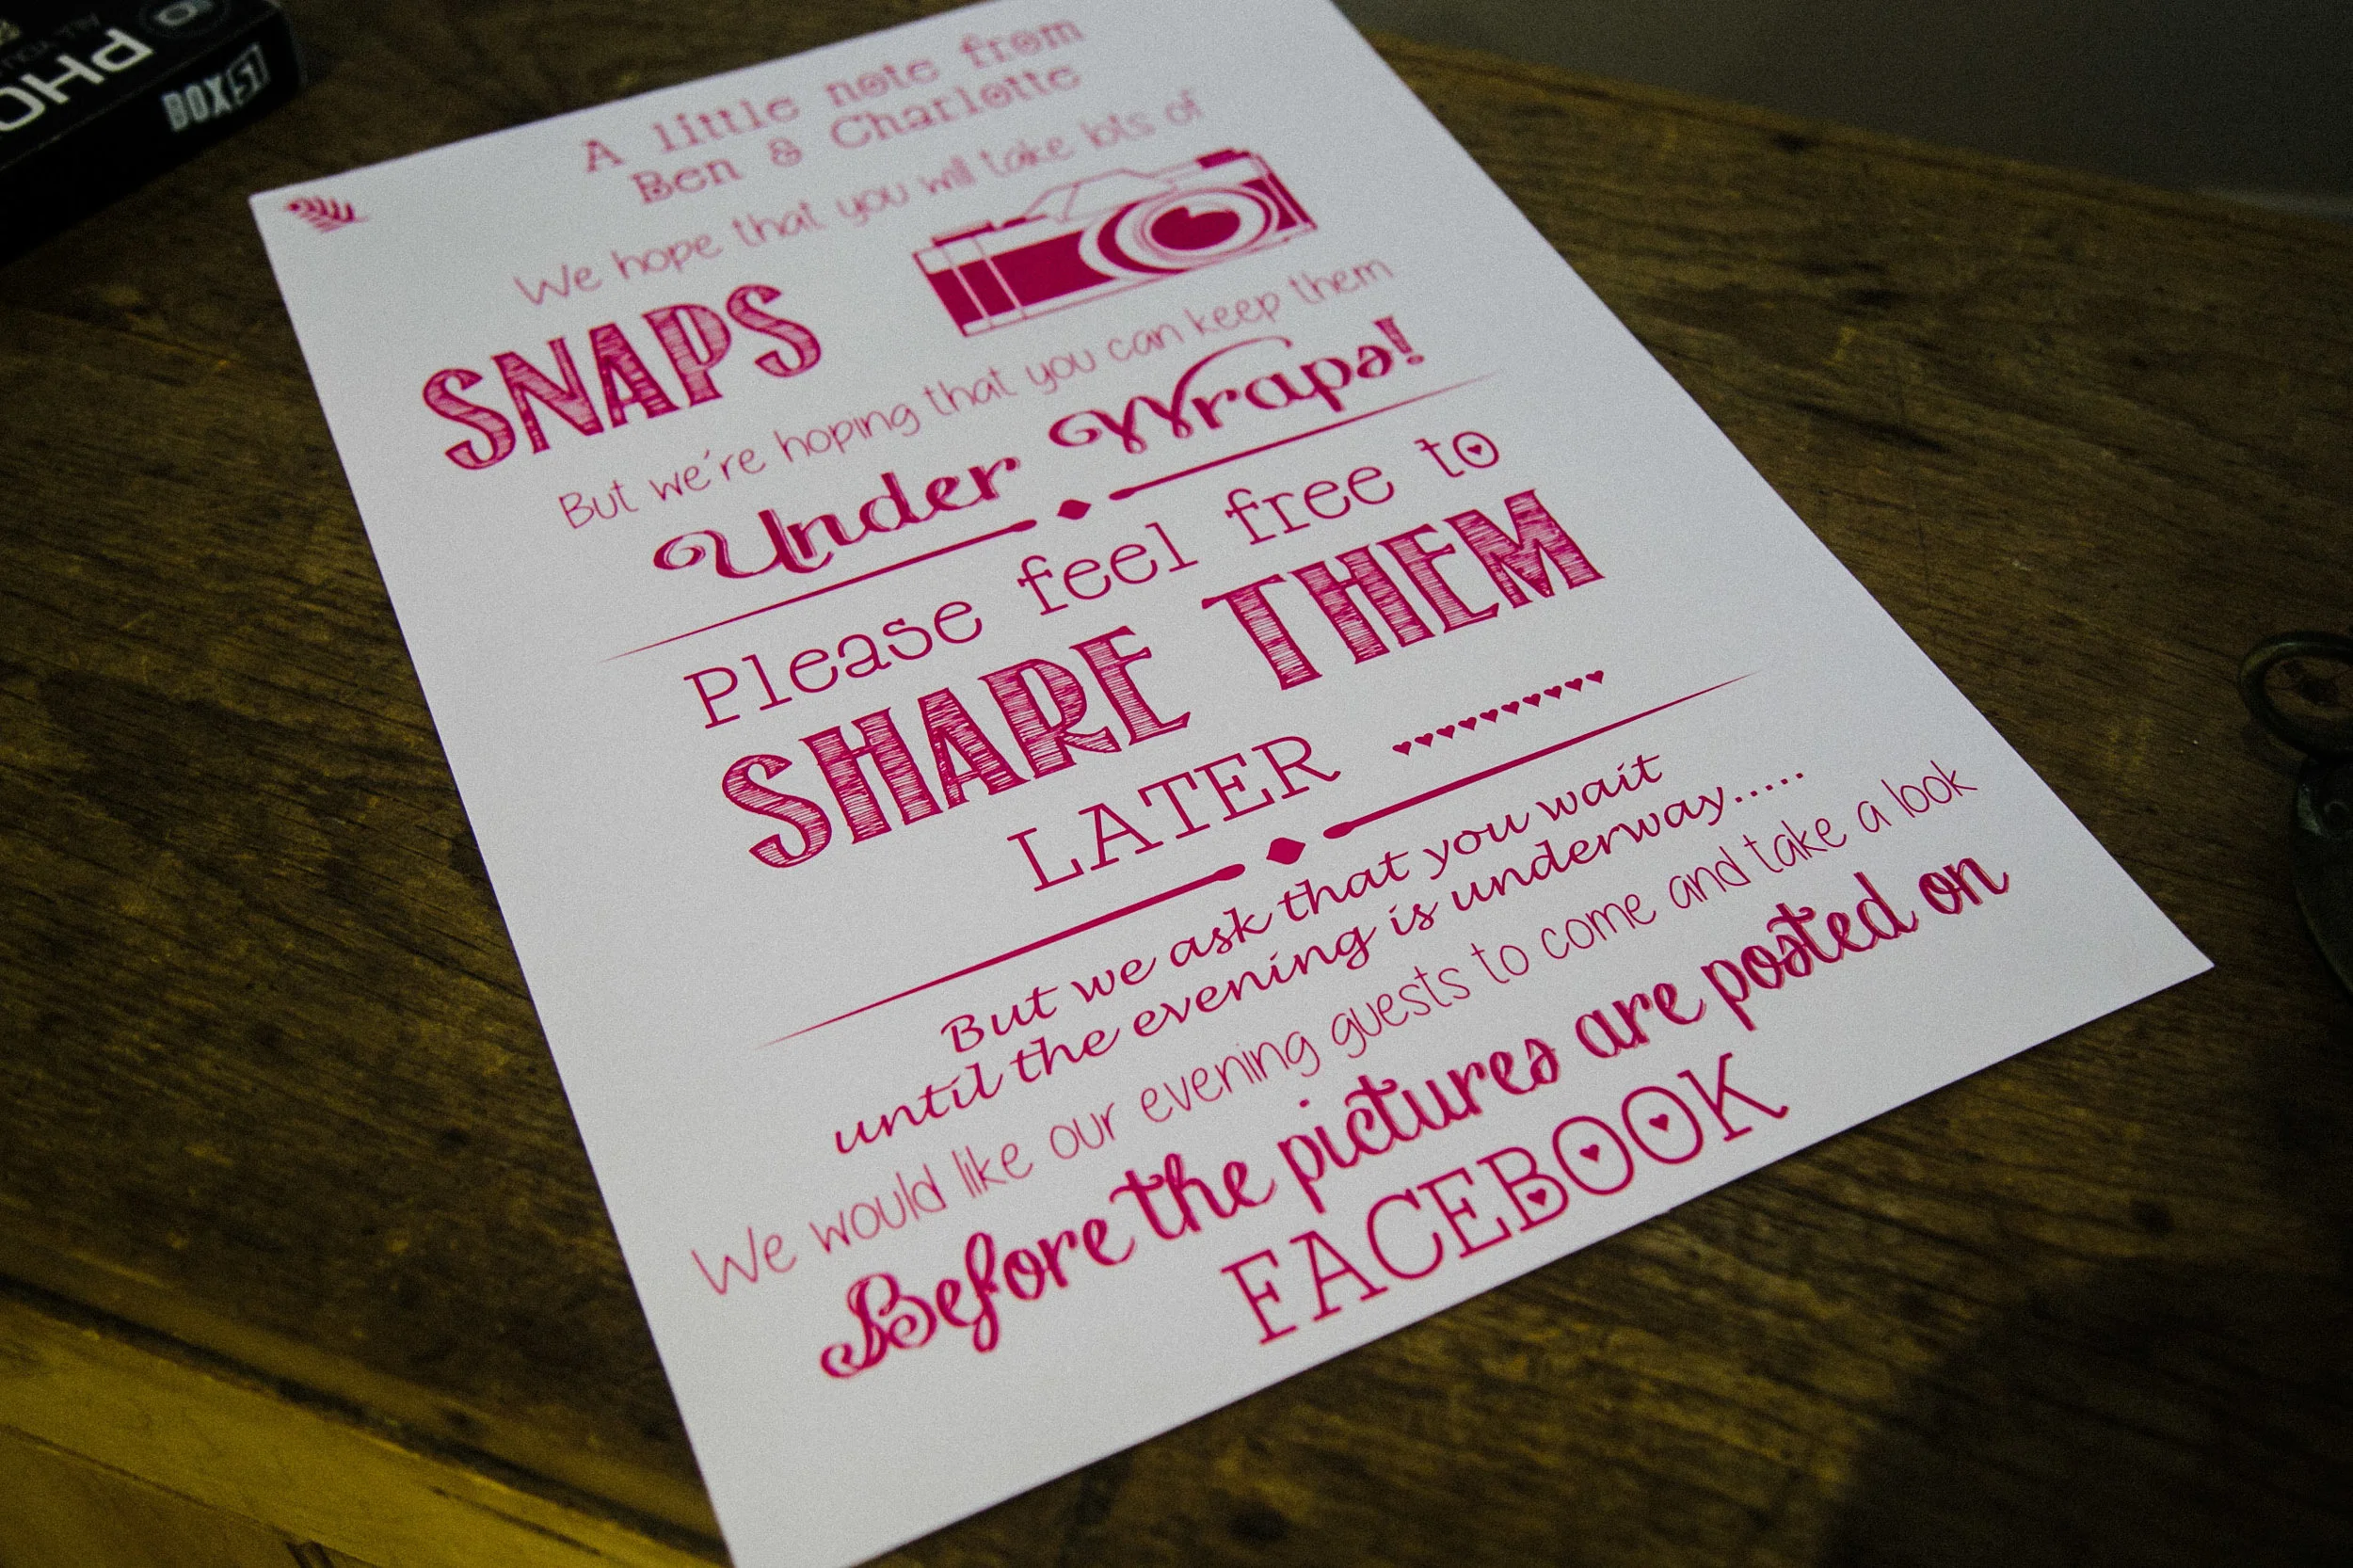 PHO
BOX 51
A little note from
Ben & Charlotte
We hope that you will take lots of
SNAPS
But we're hoping that you can keep them
Under Wraps!
Please feel free to
SHARE THEM
LATER
But we ask that you wait
until the evening is underway.....
We would like our evening guests to come and take a look
Before the pictures are posted on
FACEBOOK